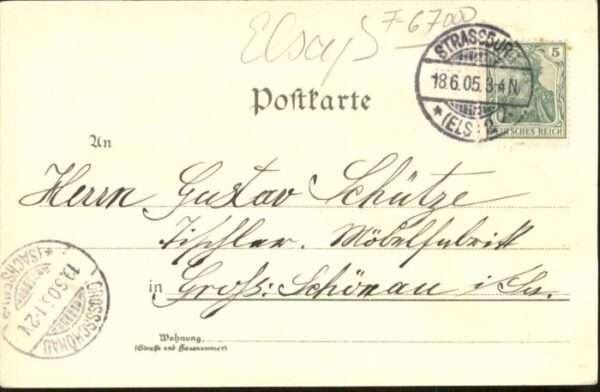 Elsaß F-67000
STRASSBURG
5
18.6.05.3-4N.
* (ELS.) 2.
DEUTSCHES REICH
Postkarte
An
Herrn Gustav Schütze
Tischler. Möbelfabrik
in Groß: Schönau i/Sa.
GROSSSCHÖNAU
* (SACHSEN)
Wohnung
(Straße und Hausnummer)